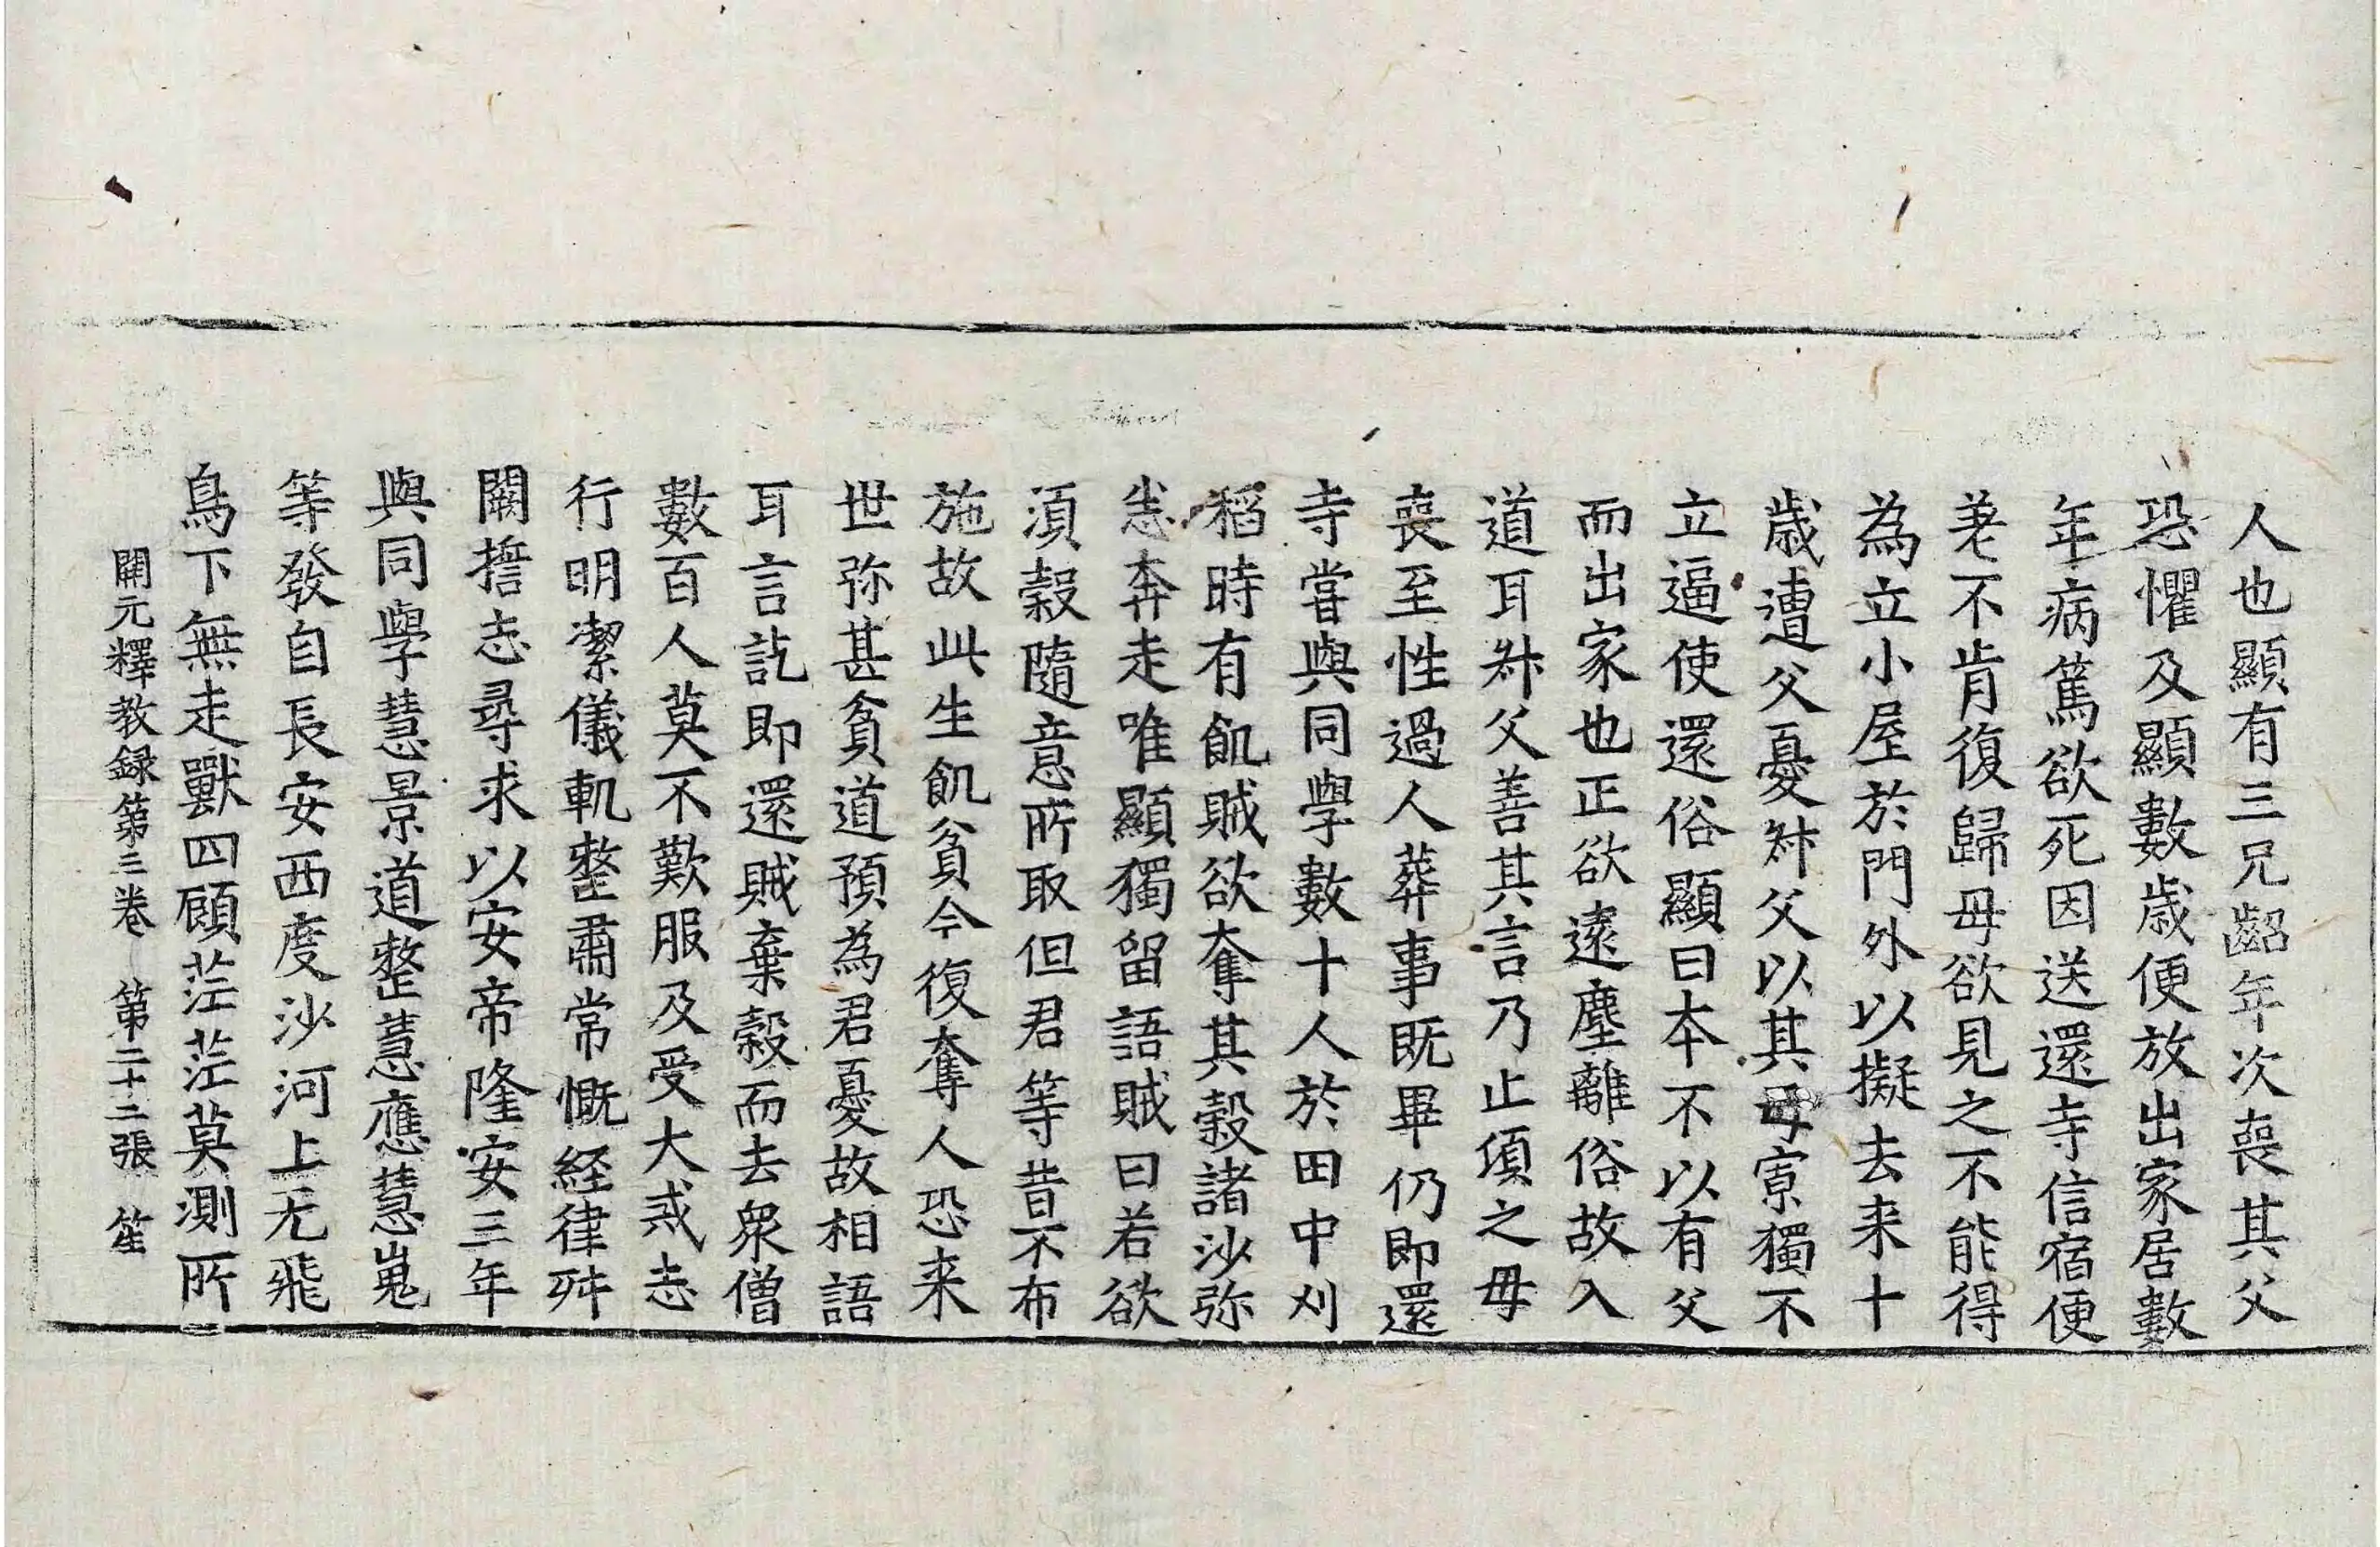 人也顯有三兄齠年次喪其父
恐懼及顯數歲便放出家居數
年病篤欲死因送還寺信宿便
差不肯復歸母欲見之不能得
為立小屋於門外以擬去来十
歲遭父憂叔父以其母寡獨不
立逼使還俗顯曰本不以有父
而出家也正欲遠塵離俗故入
道耳叔父善其言乃止湏之母
喪至性過人葬事既畢仍即還
寺甞與同學數十人於田中刈
稻時有飢賊欲奪其穀諸沙弥
悉奔走唯顯獨留語賊曰若欲
湏穀隨意所取但君等昔不布
施故此生飢貧今復奪人恐来
世弥甚貧道預為君憂故相語
耳言訖即還賊棄穀而去衆僧
數百人莫不歎服及受大戒志
行明潔儀軌整肅常慨経律舛
闕誓志尋求以安帝隆安三年
與同學慧景道整慧應慧嵬
等發自長安西度沙河上无飛
鳥下無走獸四顧茫茫莫測所
開元釋教録第三卷 第二十二張 笙